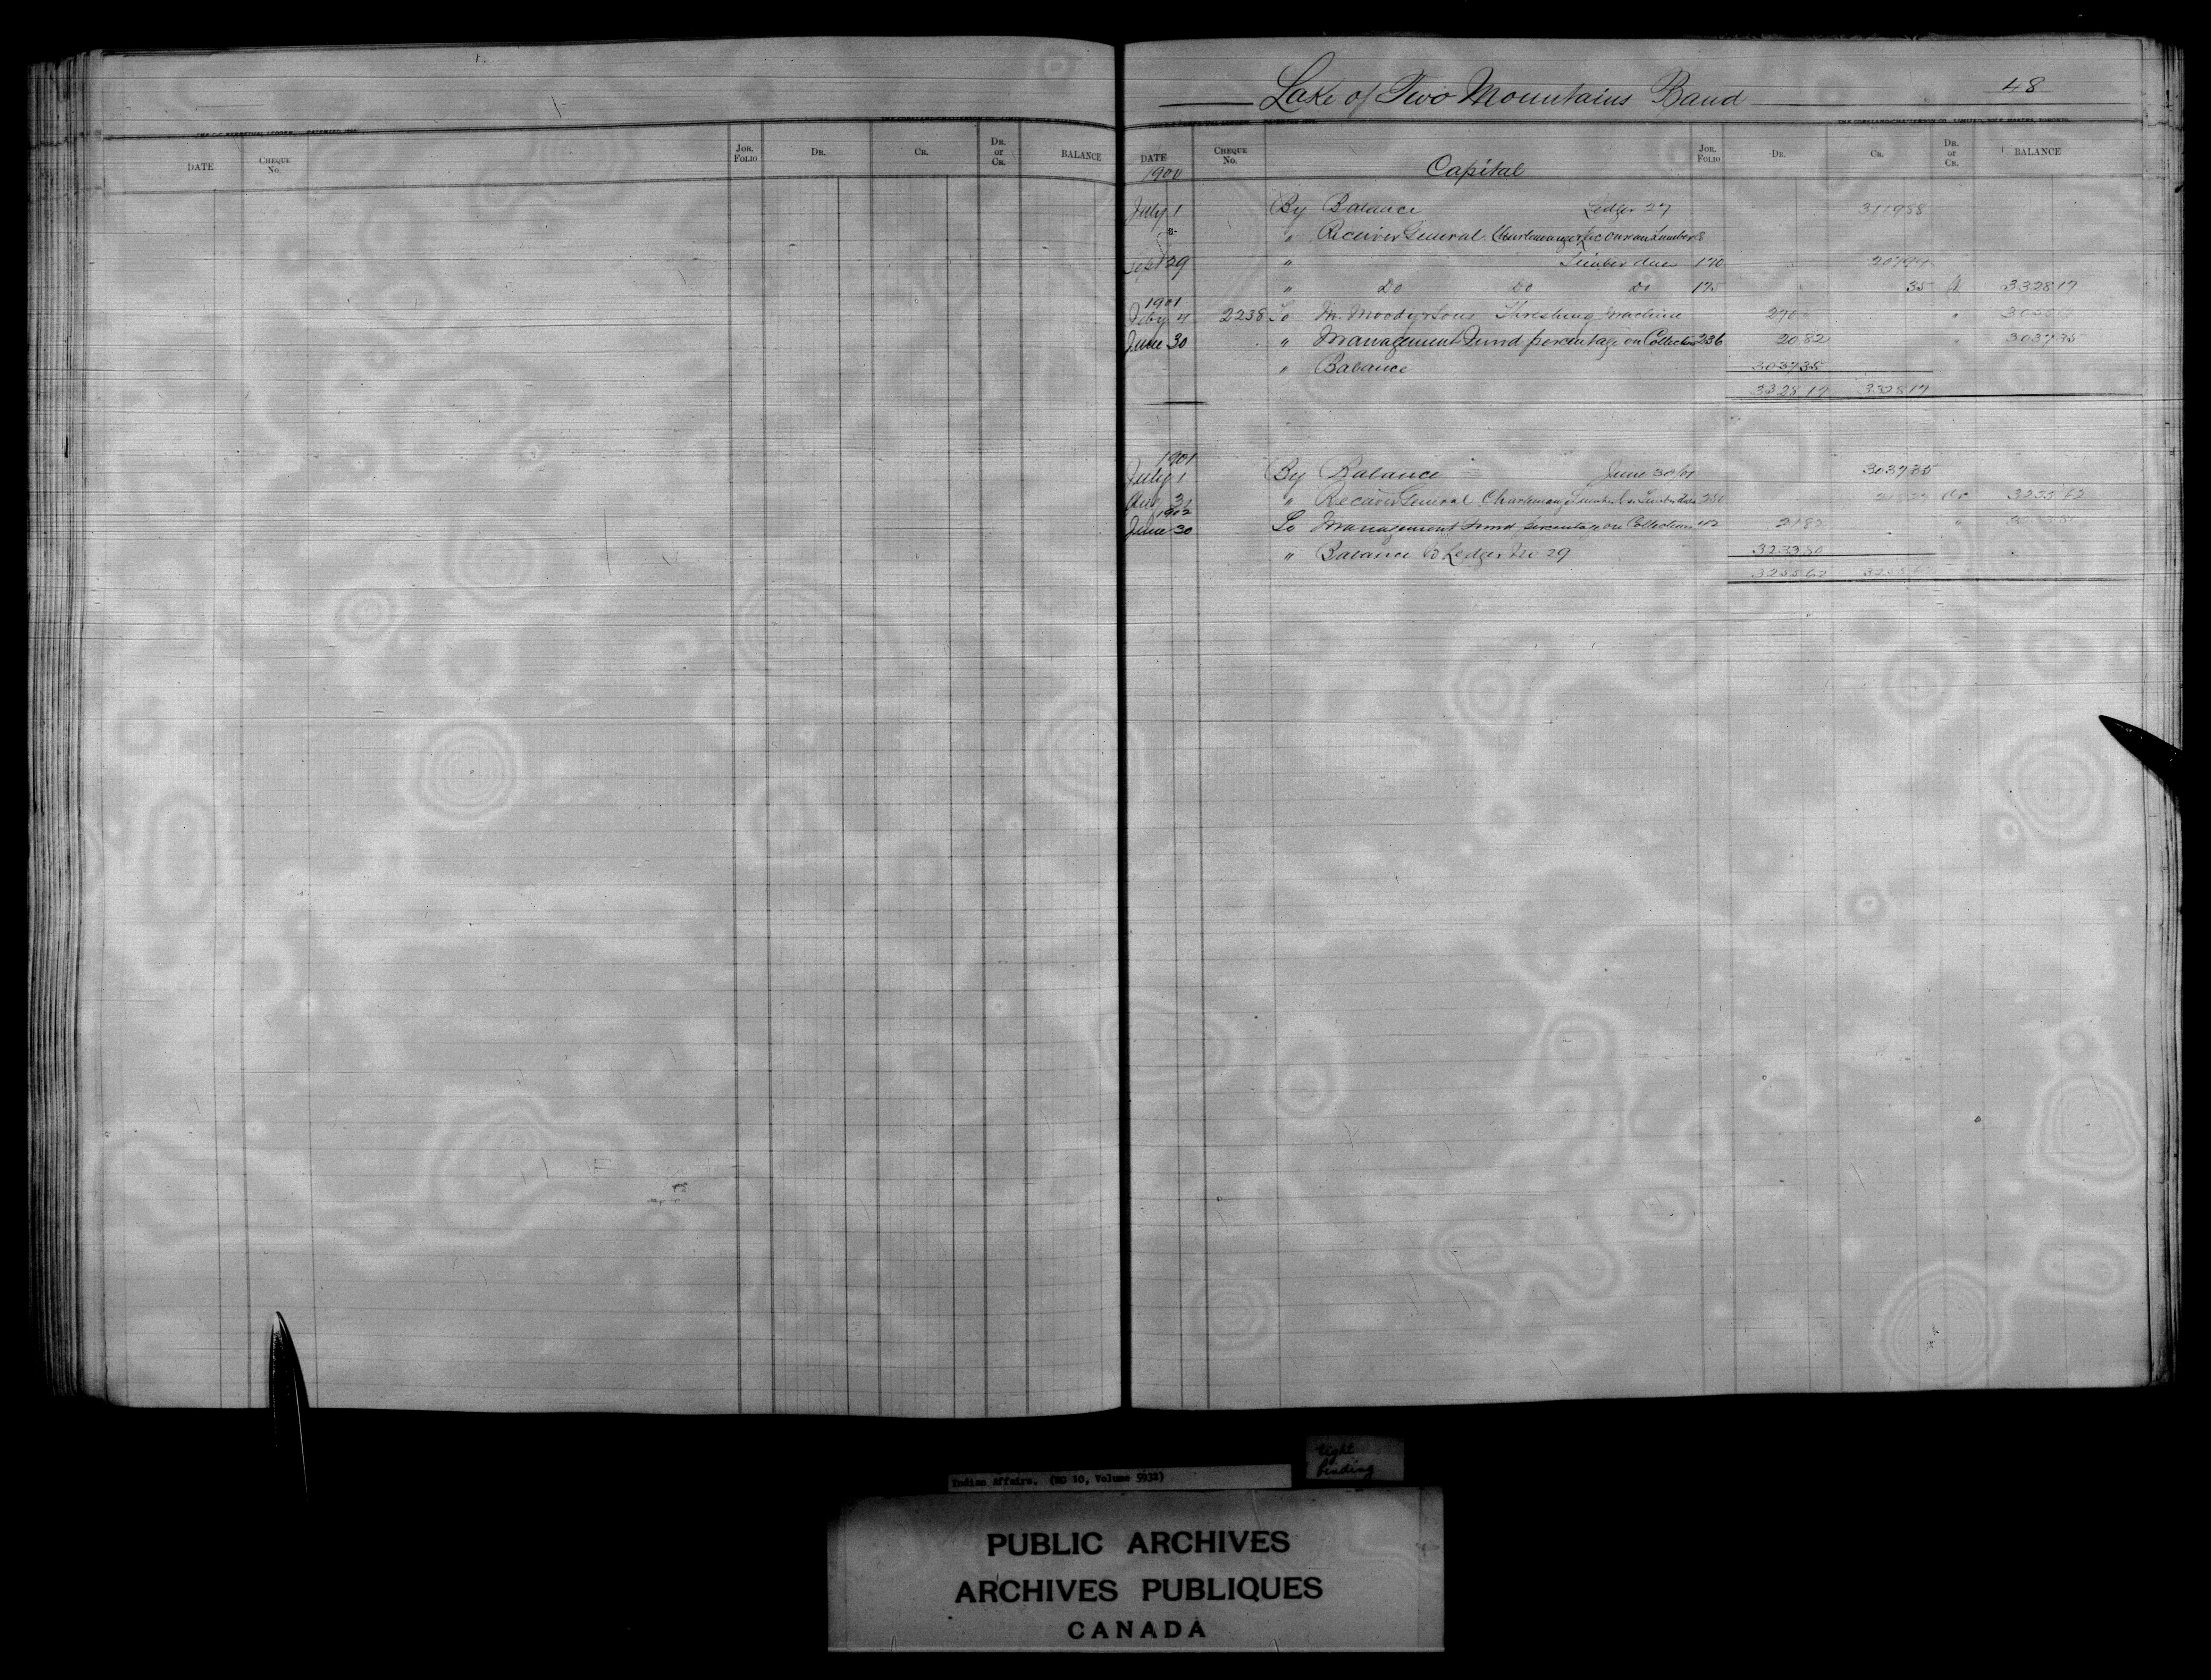 Lake of Two Mountains Band 48
DATE CHEQUE No. JOR. FOLIO DR. CR. DR. or CR. BALANCE
DATE CHEQUE No. Capital JOR. FOLIO DR. CR. DR. or CR. BALANCE
1900
July 1 By Balance Ledger 27 3119 88
" Receiver General
Sept 29 " Timber dues 170 207 94
" Do Do Do 175 35 3328 17
1901
Feby 4 2238 To M. Moody & Sons Threshing Machine
June 30 " Management Fund percentage on Collections 236 20 82 " 3037 35
" Balance 3037 35
3328 17 3328 17
1901
July 1 By Balance June 30/01 3037 35
Aug " Receiver General Lumber Co Timber Dues Cr 3255 62
1902
June 30 To Management Fund percentage on Collections 21 82 "
" Balance to Ledger No 29 3233 80
3255 62 3255 62
Indian Affairs. (RG 10, Volume 5932)
tight
binding
PUBLIC ARCHIVES
ARCHIVES PUBLIQUES
CANADA